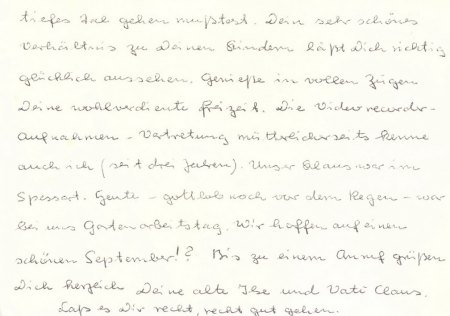 tiefes Tal gehen mußtest. Dein sehr schönes
Verhältnis zu Deinen Kindern läßt Dich richtig
glücklich aussehen. Genieße in vollen Zügen
Deine wohlverdiente Freizeit. Die Videorecorder-
Aufnahmen-Vertretung mütterlicherseits kenne
auch ich (seit drei Jahren). Unser Klaus war im
Spessart. Heute - gottlob noch vor dem Regen - war
bei uns Gartenarbeitstag. Wir hoffen auf einen
schönen September!? Bis zu einem Anruf grüßen
Dich herzlich Deine alte Ilse und Vati Claus.
Laß es Dir recht, recht gut gehen.